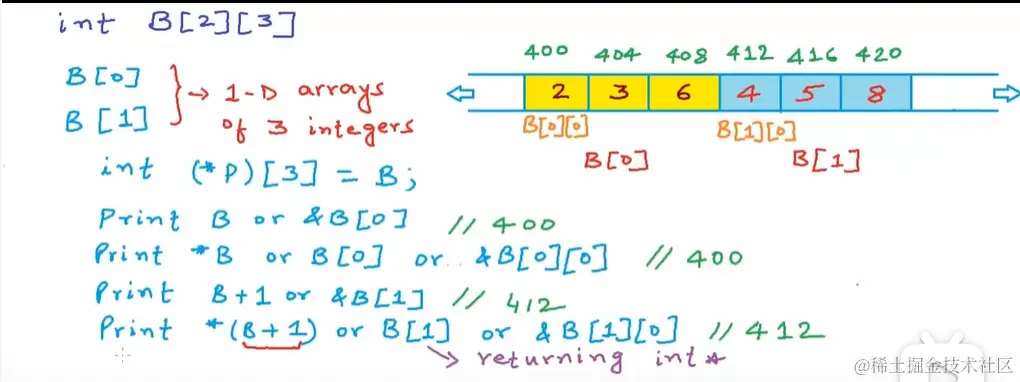 int B[2][3]
400 404 408 412 416 420
2 3 6 4 5 8
B[0][0] B[1][0]
B[0] B[1]
B[0]
B[1]
→ 1-D arrays
of 3 integers
int (*P)[3] = B;
Print B or &B[0] // 400
Print *B or B[0] or &B[0][0] // 400
Print B+1 or &B[1] // 412
Print *(B+1) or B[1] or &B[1][0] // 412
returning int*
@稀土掘金技术社区